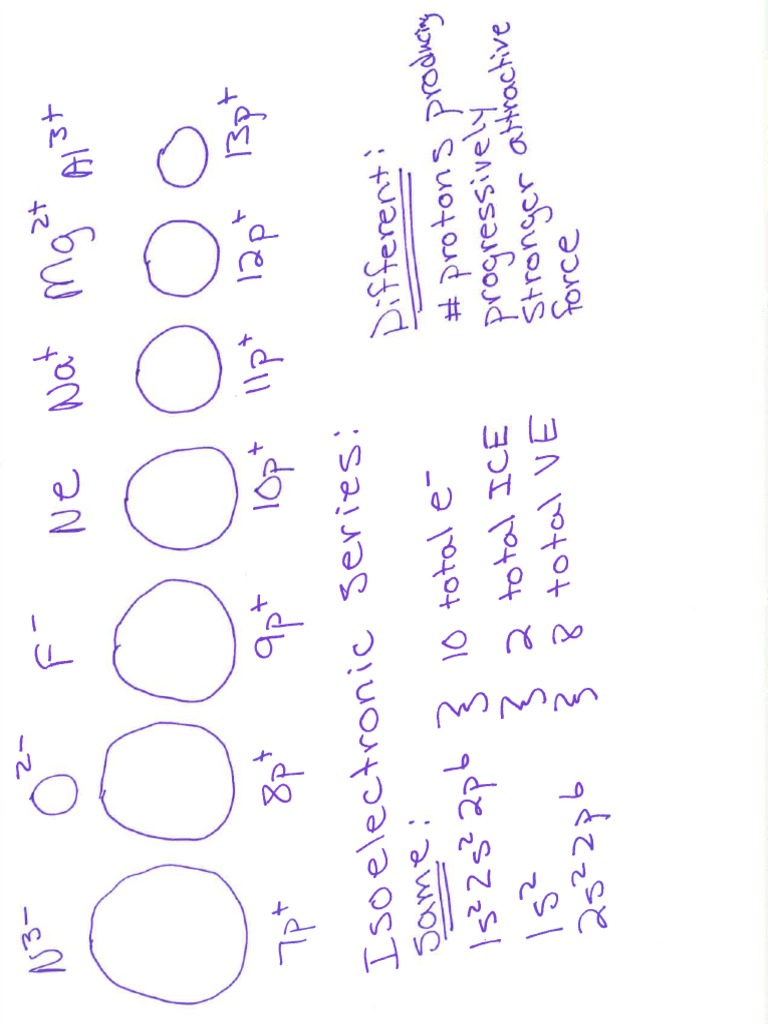 N³⁻ O²⁻ F⁻ Ne Na⁺ Mg²⁺ Al³⁺
7p⁺ 8p⁺ 9p⁺ 10p⁺ 11p⁺ 12p⁺ 13p⁺
Isoelectronic Series:
Same:
1s²2s²2p⁶ } 10 total e⁻
1s² } 2 total ICE
2s²2p⁶ } 8 total VE
Different:
# protons producing
progressively
stronger attractive
force